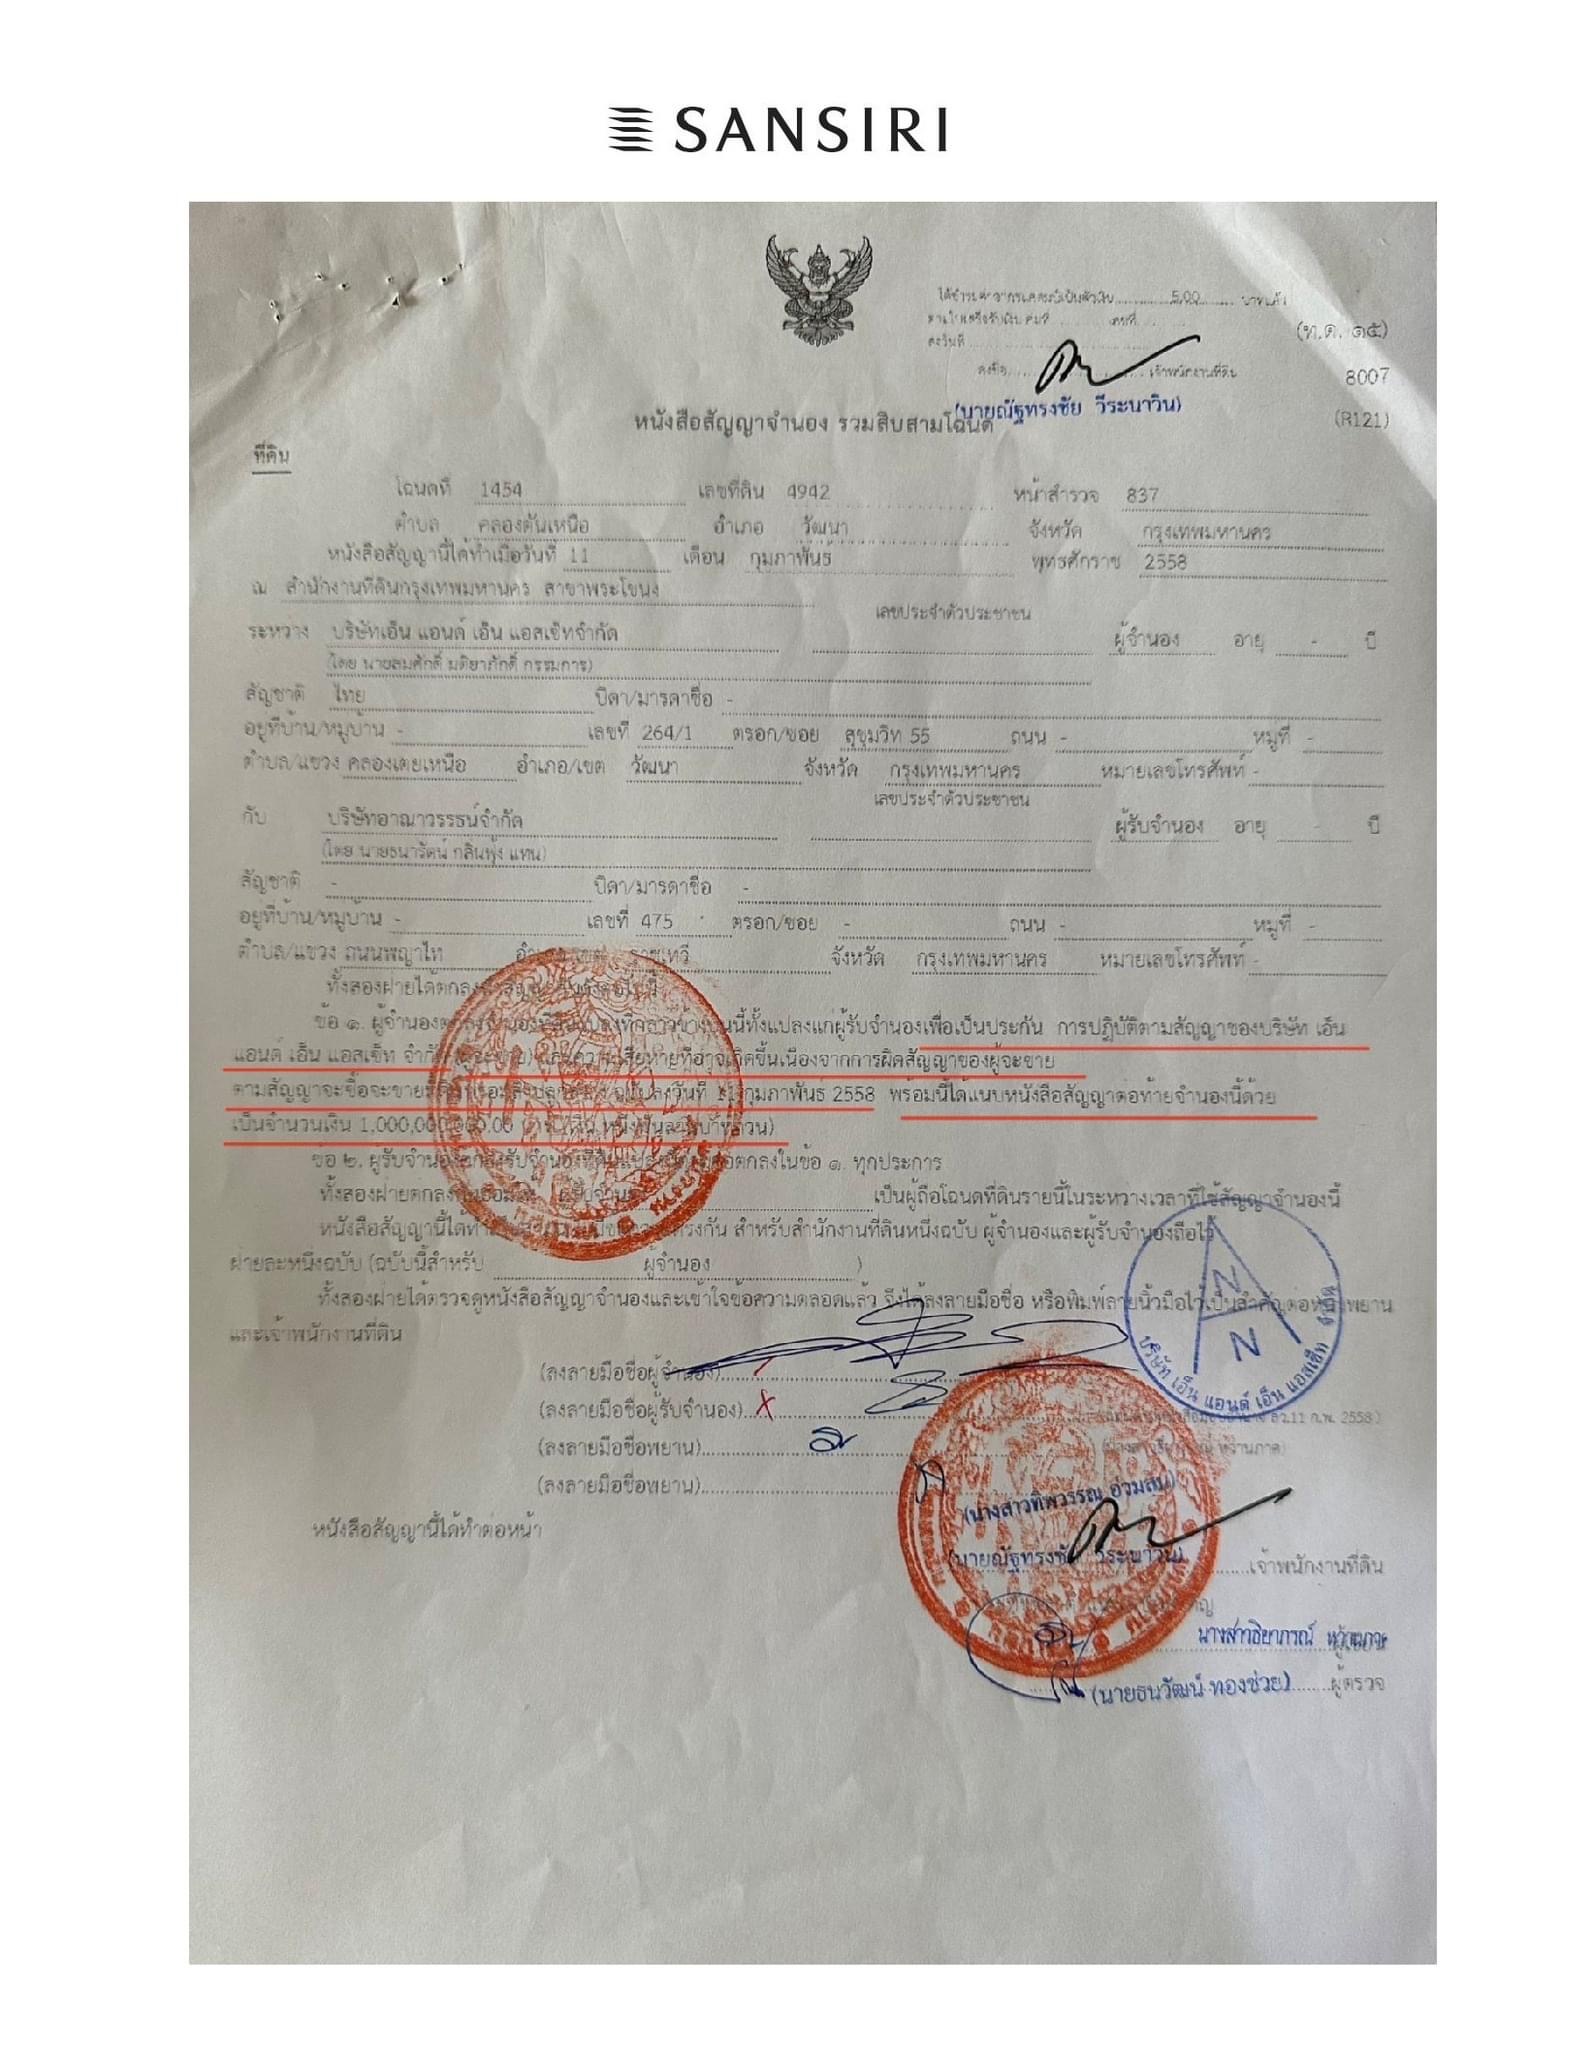 SANSIRI
ได้ชำระค่าอากรแสตมป์เป็นตัวเงิน 5.00 บาทแล้ว
ตามใบเสร็จรับเงิน เล่มที่ เลขที่
ลงวันที่
(ท.ด. ๑๕)
ลงชื่อ เจ้าพนักงานที่ดิน
8007
(นายณัฐทรงชัย วีระนาวิน)
หนังสือสัญญาจำนอง รวมสิบสามโฉนด
(R121)
ที่ดิน
โฉนดที่ 1454 เลขที่ดิน 4942 หน้าสำรวจ 837
ตำบล คลองตันเหนือ อำเภอ วัฒนา จังหวัด กรุงเทพมหานคร
หนังสือสัญญานี้ได้ทำเมื่อวันที่ 11 เดือน กุมภาพันธ์ พุทธศักราช 2558
ณ สำนักงานที่ดินกรุงเทพมหานคร สาขาพระโขนง
เลขประจำตัวประชาชน
ระหว่าง บริษัทเอ็น แอนด์ เอ็น แอสเซ็ทจำกัด ผู้จำนอง อายุ - ปี
(โดย นายสมศักดิ์ มติยาภักดิ์ กรรมการ)
สัญชาติ ไทย บิดา/มารดาชื่อ -
อยู่ที่บ้าน/หมู่บ้าน - เลขที่ 264/1 ตรอก/ซอย สุขุมวิท 55 ถนน - หมู่ที่ -
ตำบล/แขวง คลองเตยเหนือ อำเภอ/เขต วัฒนา จังหวัด กรุงเทพมหานคร หมายเลขโทรศัพท์ -
เลขประจำตัวประชาชน
กับ บริษัทอาณาวรรธน์จำกัด ผู้รับจำนอง อายุ - ปี
(โดย นายธนารัตน์ กลิ่นฟุ้ง แทน)
สัญชาติ - บิดา/มารดาชื่อ -
อยู่ที่บ้าน/หมู่บ้าน - เลขที่ 475 ตรอก/ซอย - ถนน - หมู่ที่ -
ตำบล/แขวง ถนนพญาไท ราชเทวี จังหวัด กรุงเทพมหานคร หมายเลขโทรศัพท์ -
ทั้งสองฝ่ายได้ตกลง
ข้อ ๑. ผู้จำนอง ทั้งแปลงแก่ผู้รับจำนองเพื่อเป็นประกัน การปฏิบัติตามสัญญาของบริษัท เอ็น
แอนด์ เอ็น แอสเซ็ท จำกัด เสียหายที่อาจเกิดขึ้นเนื่องจากการผิดสัญญาของผู้จะขาย
ตามสัญญาจะซื้อจะขาย ฉบับลงวันที่ 11 กุมภาพันธ์ 2558 พร้อมนี้ได้แนบหนังสือสัญญาต่อท้ายจำนองนี้ด้วย
เป็นจำนวนเงิน 1,000,000,000.00 บาท (เงิน หนึ่งพันล้านบาทถ้วน)
ข้อ ๒. ผู้รับจำนองตกลงรับจำนองที่ดิน ข้อ ๑. ทุกประการ
ทั้งสองฝ่ายตกลง ผู้รับจำนอง เป็นผู้ถือโฉนดที่ดินรายนี้ในระหว่างเวลาที่ใช้สัญญาจำนองนี้
หนังสือสัญญานี้ได้ทำ ตรงกัน สำหรับสำนักงานที่ดินหนึ่งฉบับ ผู้จำนองและผู้รับจำนองถือไว้
ฝ่ายละหนึ่งฉบับ (ฉบับนี้สำหรับ ผู้จำนอง )
ทั้งสองฝ่ายได้ตรวจดูหนังสือสัญญาจำนองและเข้าใจข้อความตลอดแล้ว จึงได้ลงลายมือชื่อ หรือพิมพ์ลายนิ้วมือไว้เป็นสำคัญต่อหน้าพยาน
และเจ้าพนักงานที่ดิน
N
N
บริษัท เอ็น แอนด์ เอ็น แอสเซ็ท จำกัด
(ลงลายมือชื่อผู้จำนอง)
(ลงลายมือชื่อผู้รับจำนอง) ลว.11 ก.พ. 2558)
(ลงลายมือชื่อพยาน)
(ลงลายมือชื่อพยาน)
(นางสาวทิพวรรณ อ่วมสน)
หนังสือสัญญานี้ได้ทำต่อหน้า
(นายณัฐทรงชัย วีระนาวิน) เจ้าพนักงานที่ดิน
นางสาวธิยาภรณ์
(นายธนวัฒน์ ทองช่วย) ผู้ตรวจ